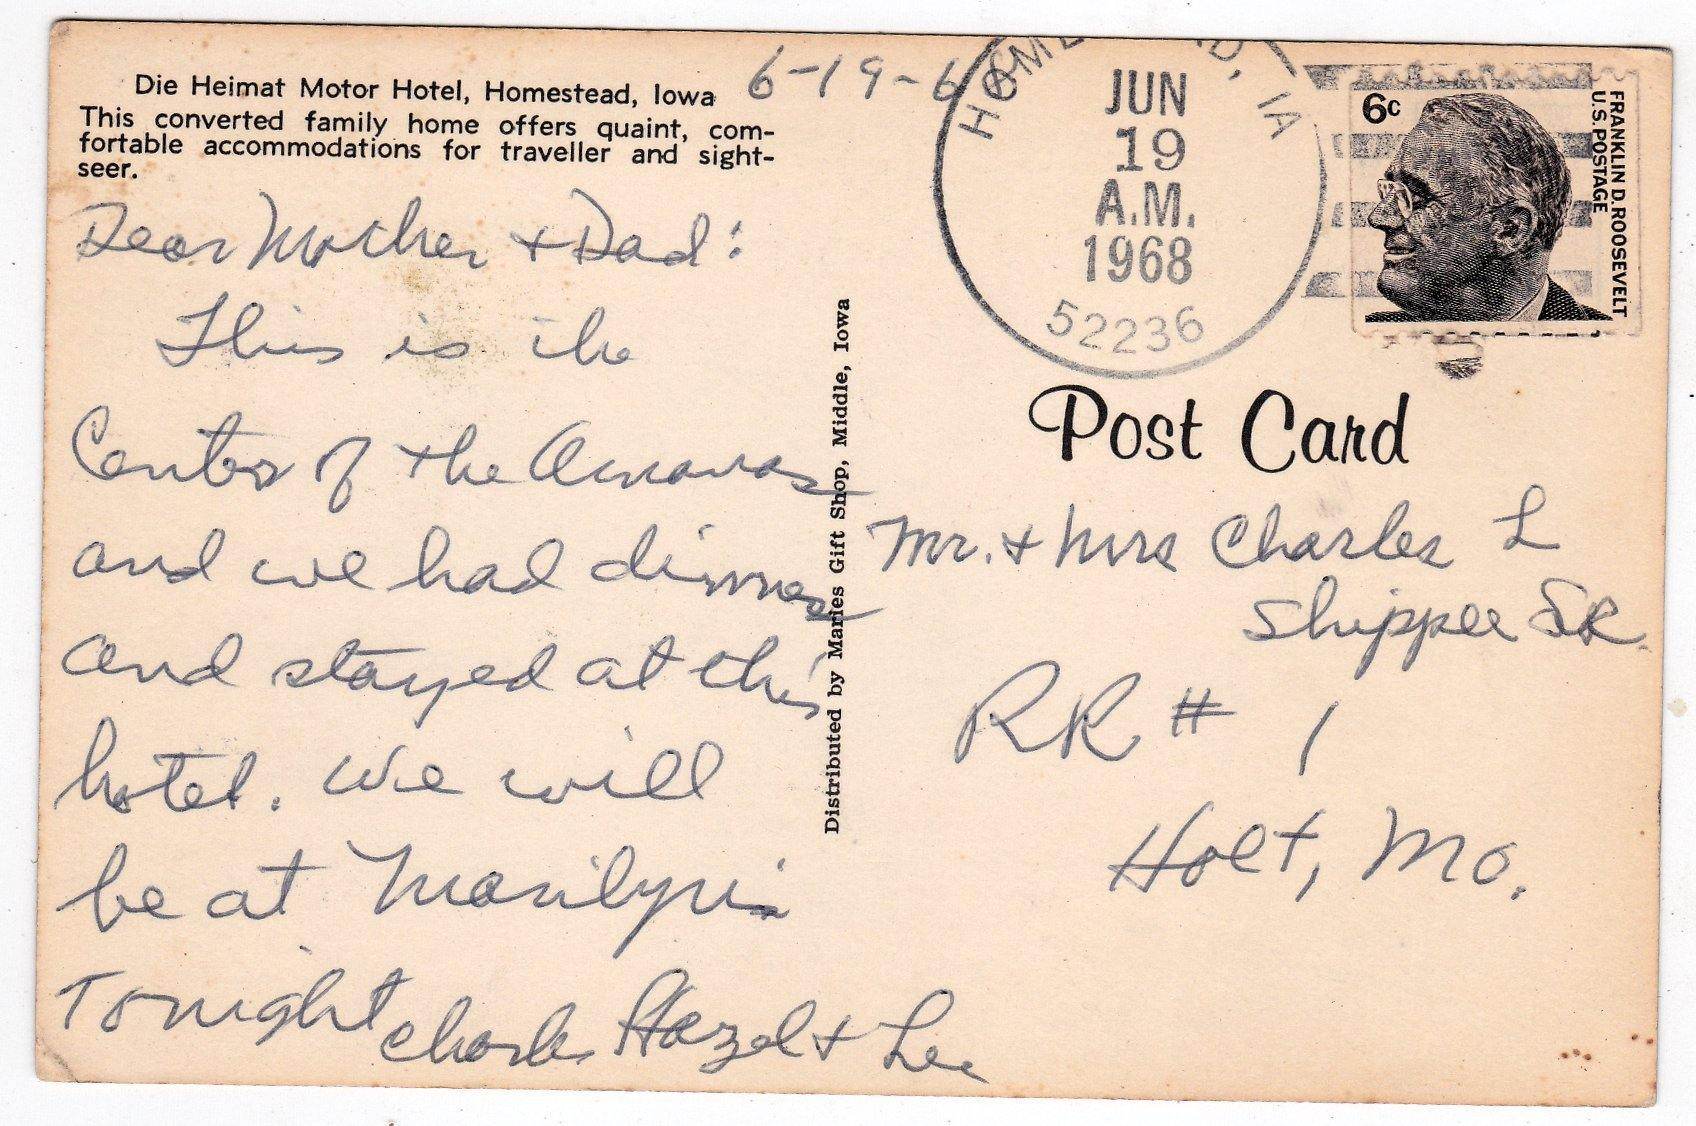 Die Heimat Motor Hotel, Homestead, Iowa
This converted family home offers quaint, com-
fortable accommodations for traveller and sight-
seer.
6-19-68
HOMESTEAD, IA
JUN
19
A.M.
1968
52236
6c
FRANKLIN D. ROOSEVELT
U.S. POSTAGE
Dear Mother + Dad:
This is the
Center of the Amanas
and we had dinner
and stayed at this
hotel. We will
be at Marilyn's
Tonight
Charles Hazel + Lee
Distributed by Maries Gift Shop, Middle, Iowa
Post Card
Mr. + Mrs Charles L
Shipper SR.
RR # 1
Holt, Mo.